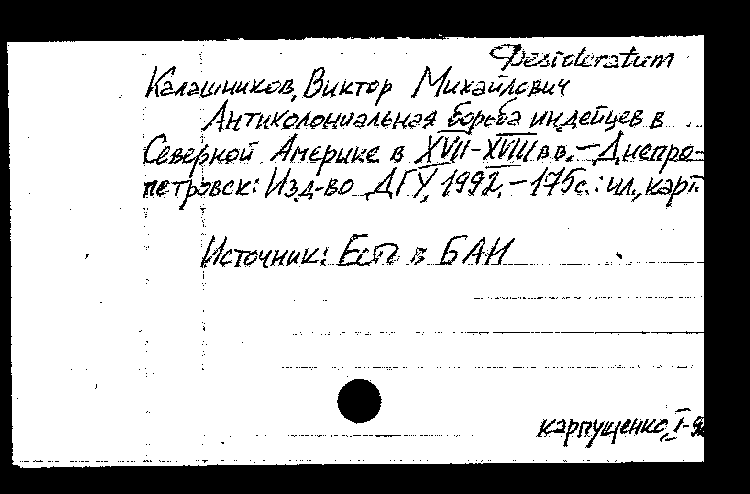 Desideratum
Калашников, Виктор Михайлович
Антиколониальная борьба индейцев в
Северной Америке в XVII-XVIII вв. – Днепро-
петровск: Изд-во ДГУ, 1992. – 175с.: ил., карт
Источник: Есть в БАН
карпущенко, I-9